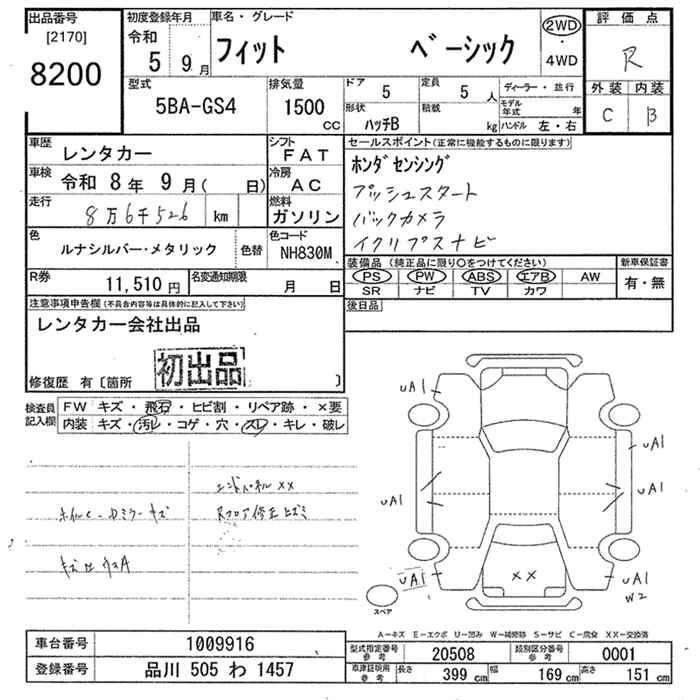 出品番号
[2170]
8200
初度登録年月
令和
5 9月
車名・グレード
フィット ベーシック
2WD
・
4WD
評価点
R
外装 内装
C B
型式
5BA-GS4
排気量
1500
CC
ドア 5
定員 5人
形状
ハッチB
積載 kg
ディーラー・並行
モデル年式 年
ハンドル 左・右
車歴 レンタカー
車検 令和 8年 9月( 日)
走行 8万6千526 km
色 ルナシルバー・メタリック 色替
シフト
FAT
冷房
AC
燃料
ガソリン
色コード
NH830M
R券 11,510円
名変通知期限 月 日
セールスポイント(正常に機能するものに限ります)
ホンダセンシング
プッシュスタート
バックカメラ
イクリプスナビ
装備品 (純正品に限り○をつけてください)
PS PW ABS エアB AW
SR ナビ TV カワ
新車保証書
有・無
後日品
注意事項申告欄(不具合内容等は具体的に記入して下さい)
レンタカー会社出品
初出品
修復歴 有〔箇所 〕
検査員
記入欄
FW キズ・飛石・ヒビ割・リペア跡・×要
内装 キズ・汚レ・コゲ・穴・スレ・キレ・破レ
エンドパネル××
ホイルC-Dミラーキズ
Rフロア修正ヒズミ
uA1
uA1
uA1
uA1
uA1
uA1
W2
××
スペア
A-キズ E-エクボ U-凹み W-補修跡 S-サビ C-腐食 XX-交換済
車台番号 1009916
登録番号 品川 505 わ 1457
型式指定番号
参考
20508
類別区分番号
参考
0001
車庫証明用
参考
長さ 399 cm 幅 169 cm 高さ 151 cm